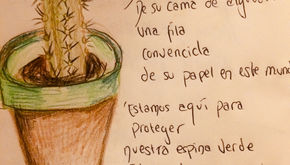 De su cama de algodón
una fila
convencida
de su papel en este mundo
'Estamos aquí para
proteger
nuestra espina verde